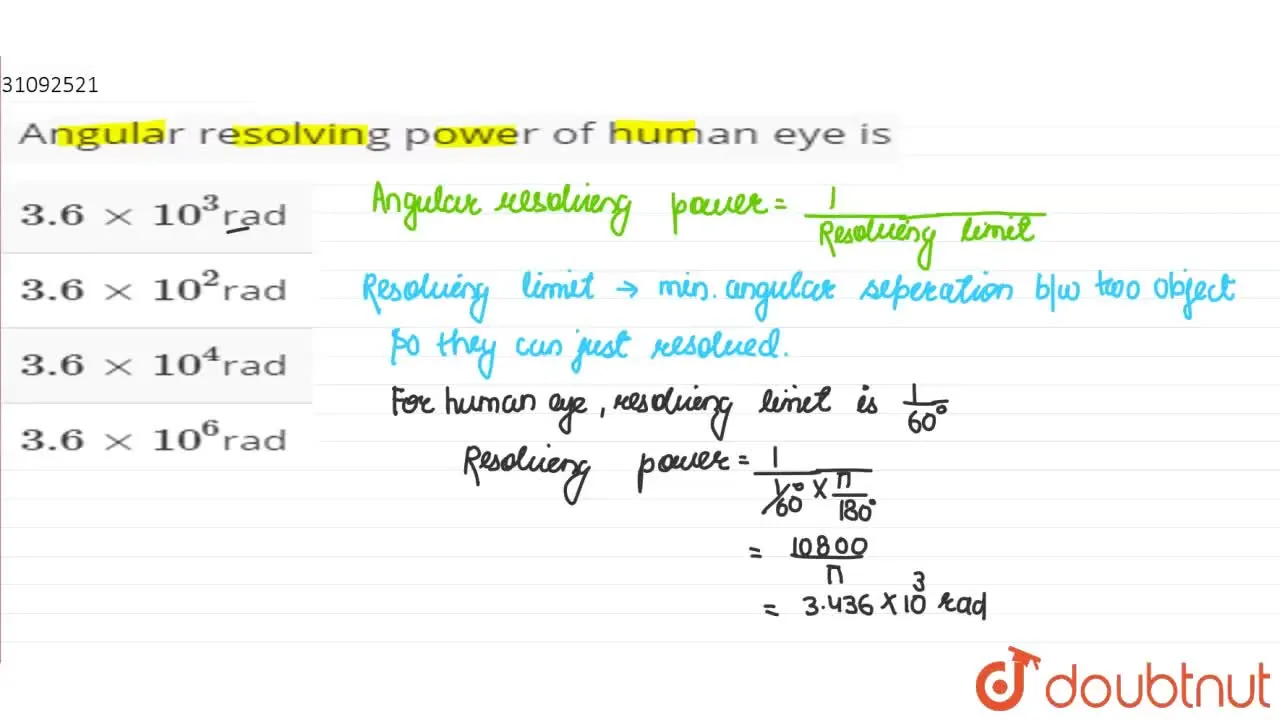 31092521
Angular resolving power of human eye is
3.6 × 10³rad
3.6 × 10²rad
3.6 × 10⁴rad
3.6 × 10⁶rad
Angular resolving power = 1 / Resolving limit
Resolving limit → min. angular seperation b/w two object
so they can just resolved.
For human eye, resolving limit is 1/60°
Resolving power = 1 / (1/60° × π/180°)
= 10800/π
= 3.436 × 10³ rad
doubtnut